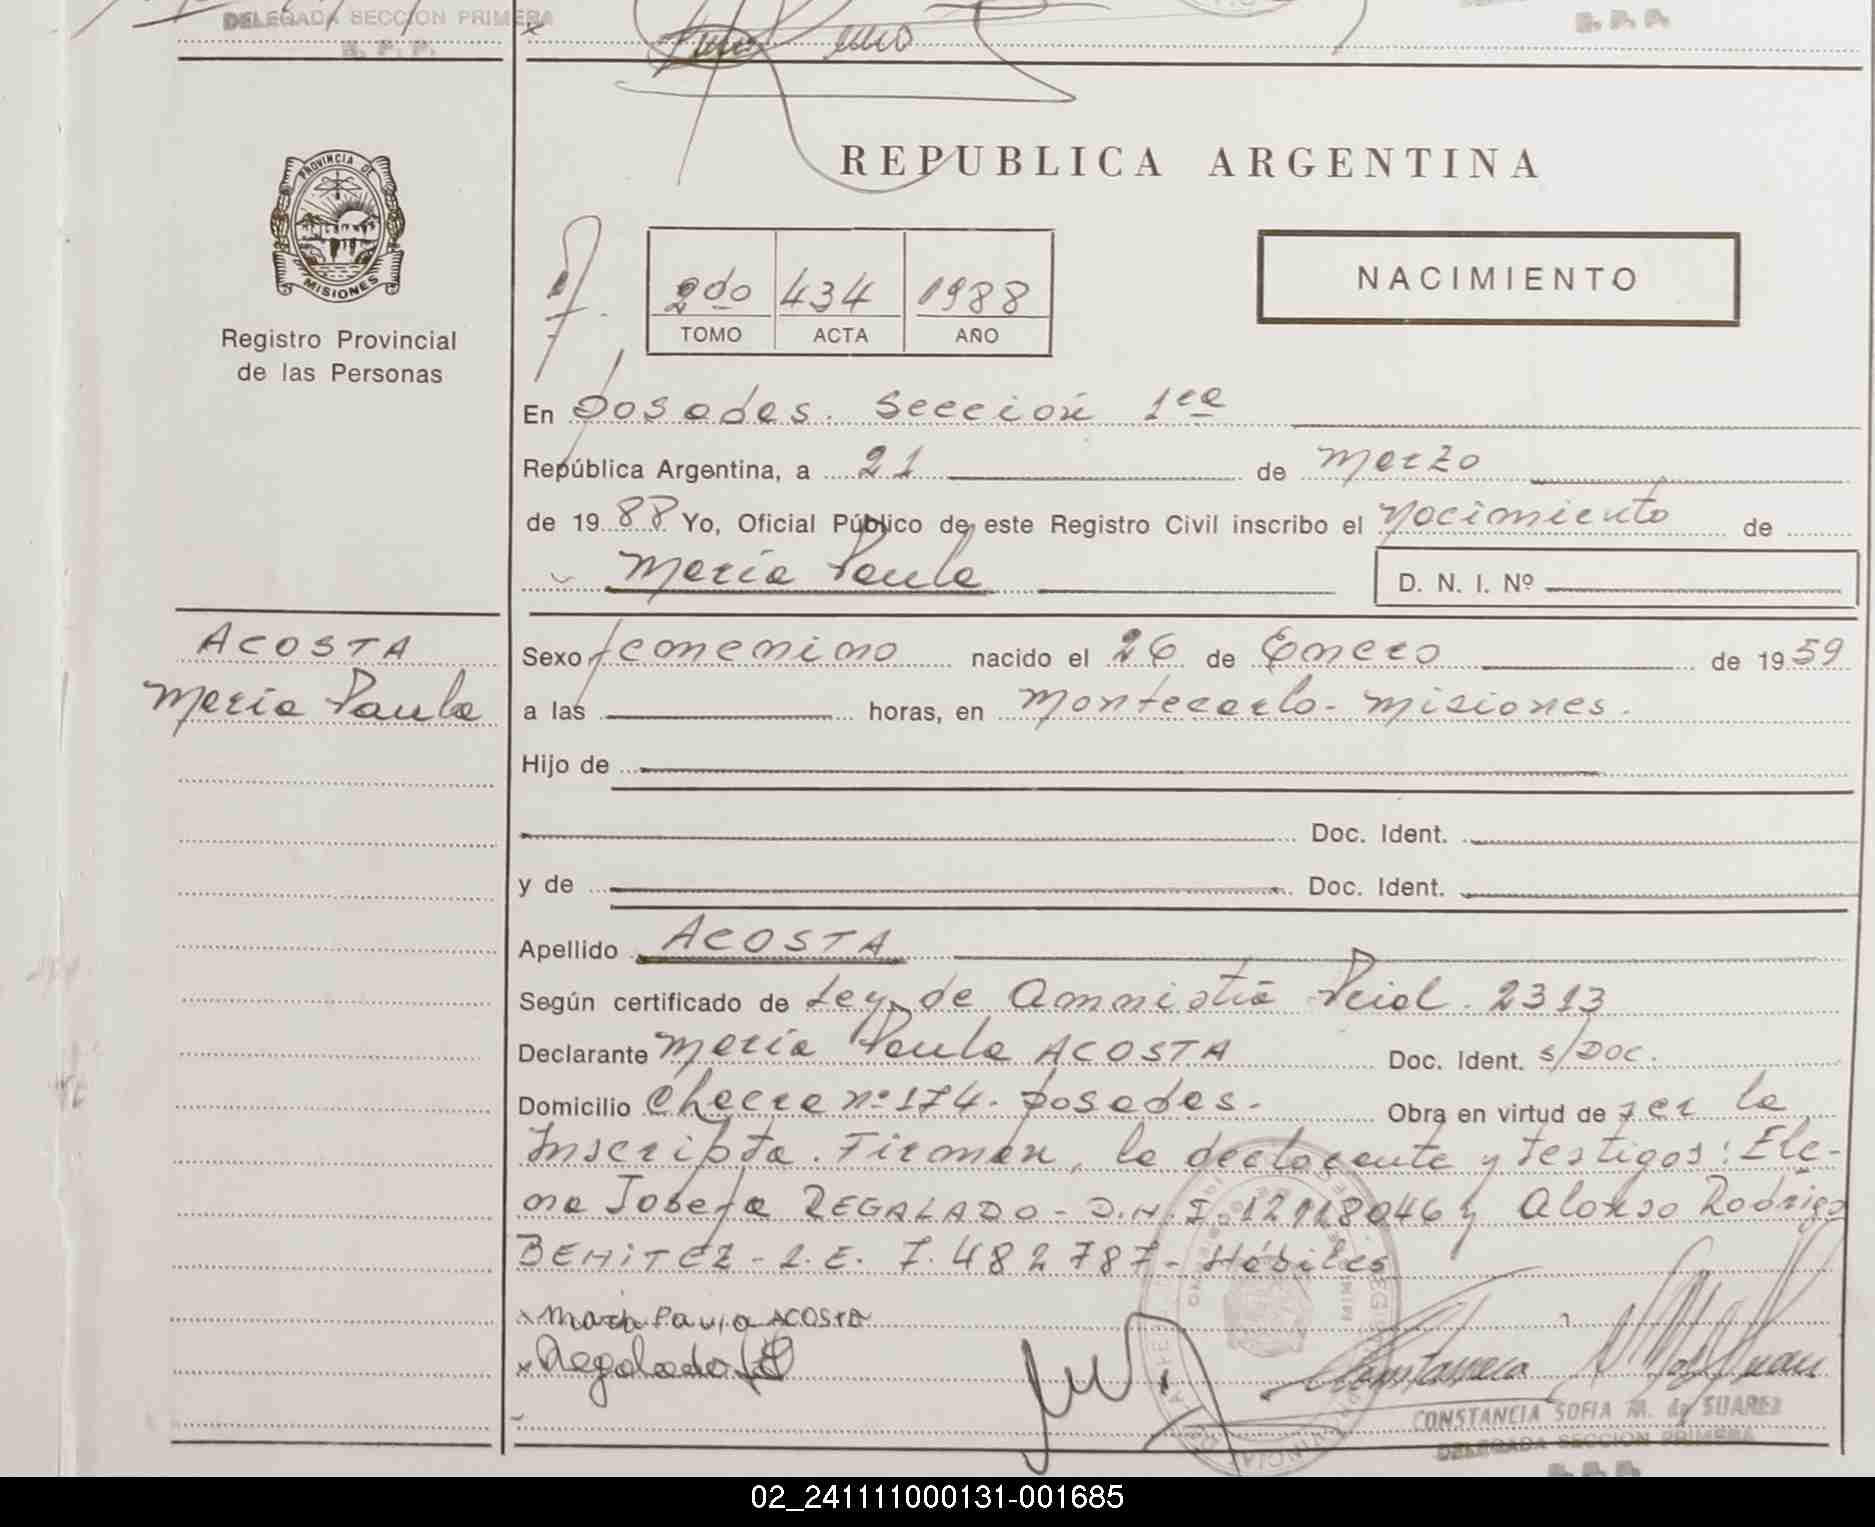 DELEGADA SECCION PRIMERA
R. P. P.
R. P. P.
PROVINCIA DE
MISIONES
Registro Provincial
de las Personas
REPUBLICA ARGENTINA
2do 434 1988
TOMO ACTA AÑO
NACIMIENTO
En Posadas. Sección 1ra
República Argentina, a 21 de Marzo
de 1988 Yo, Oficial Público de este Registro Civil inscribo el Nacimiento de
María Paula D. N. I. Nº
ACOSTA
María Paula
Sexo femenino nacido el 26 de Enero de 1959
a las horas, en Montecarlo - Misiones.
Hijo de
Doc. Ident.
y de Doc. Ident.
Apellido ACOSTA
Según certificado de Ley de Amnistía Pcial. 2313
Declarante María Paula ACOSTA Doc. Ident. s/DOC.
Domicilio Chacra nº 174. Posadas. Obra en virtud de ser la
Inscripta. Firman, la declarante y testigos: Ele-
na Josefa REGALADO - D.N.I. 12118046 y Alonso Rodrigo
BENITEZ - L.E. 7.482787 - Hábiles
x Maria Paula ACOSTA
x Regalado
CONSTANCIA SOFIA M. de SUAREZ
DELEGADA SECCION PRIMERA
R. P. P.
02_241111000131-001685